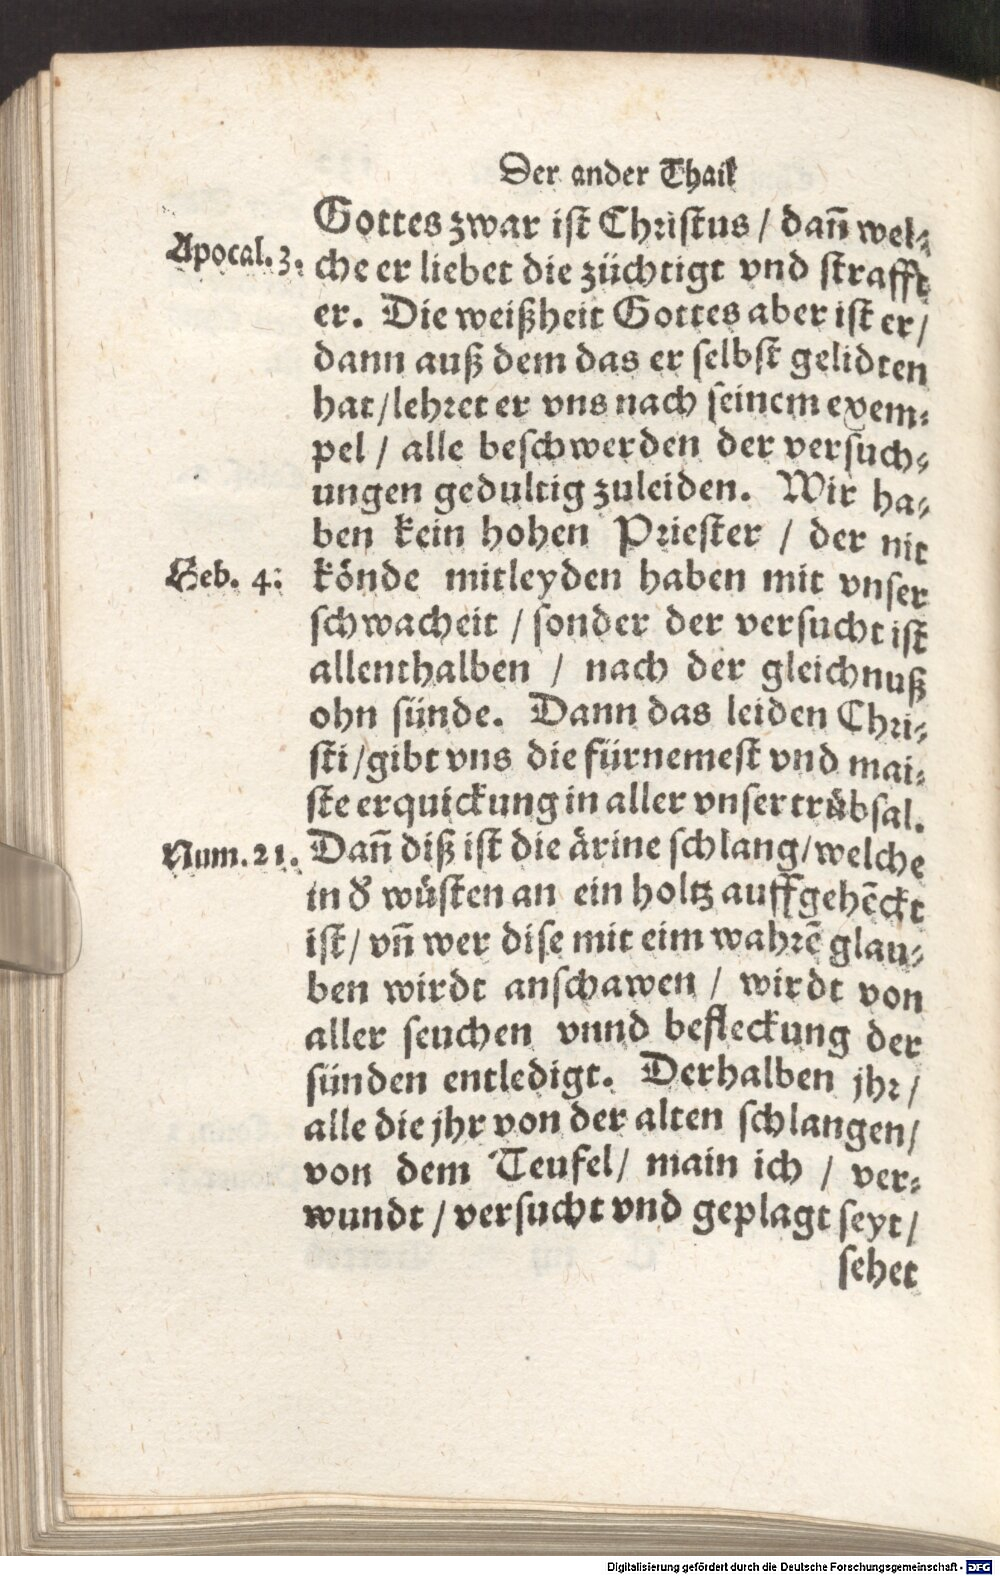 Der ander Thail
Gottes zwar ist Christus / dañ wel⸗
Apocal. 3. che er liebet die züchtigt vnd strafft
er. Die weißheit Gottes aber ist er /
dann auß dem das er selbst gelidten
hat / lehret er vns nach seinem exem⸗
pel / alle beschwerden der versuch⸗
ungen gedultig zuleiden. Wir ha⸗
ben kein hohen Priester / der nit
Heb. 4. könde mitleyden haben mit vnser
schwacheit / sonder der versucht ist
allenthalben / nach der gleichnuß
ohn sünde. Dann das leiden Chri⸗
sti / gibt vns die fürnemest vnd mai⸗
ste erquickung in aller vnser trübsal.
Num. 21. Dañ diß ist die ärine schlang / welche
in d̾ wüsten an ein holtz auffgehẽckt
ist / vñ wer dise mit eim wahrẽ glau⸗
ben wirdt anschawen / wirdt von
aller seuchen vnnd befleckung der
sünden entledigt. Derhalben jhr /
alle die jhr von der alten schlangen /
von dem Teufel / main ich / ver⸗
wundt / versucht vnd geplagt seyt /
sehet
Digitalisierung gefördert durch die Deutsche Forschungsgemeinschaft - DFG